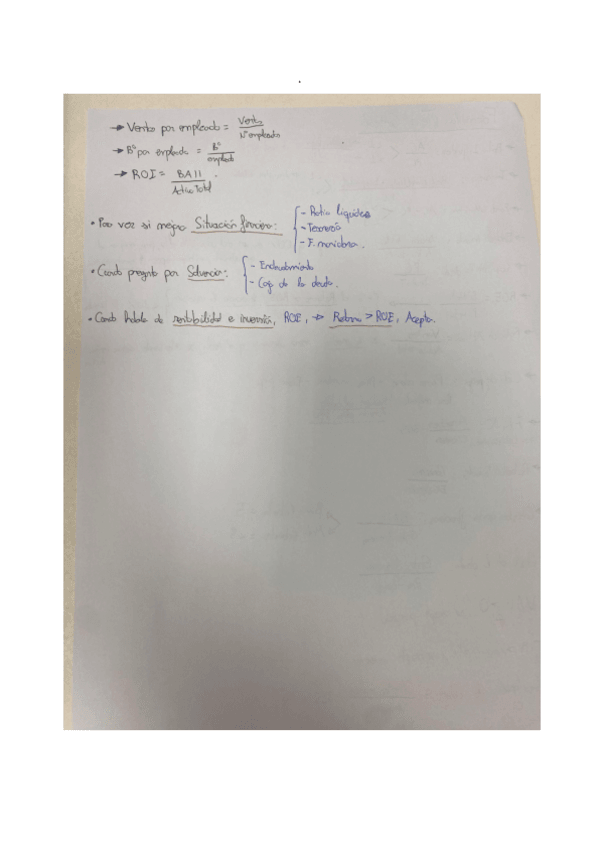 → Ventas por empleado = Ventas / Nº empleados
→ Bº por empleado = Bº / empleado
→ ROI = BAII / Activo Total.
• Para ver si mejora Situación financiera: { - Ratio liquidez
- Tesorería
- F. maniobra.
• Cuando pregunta por Solvencia: { - Endeudamiento
- Cap de la deuda.
• Cuando habla de rentabilidad e inversión, ROE, → Retorno > ROE, Acepto.